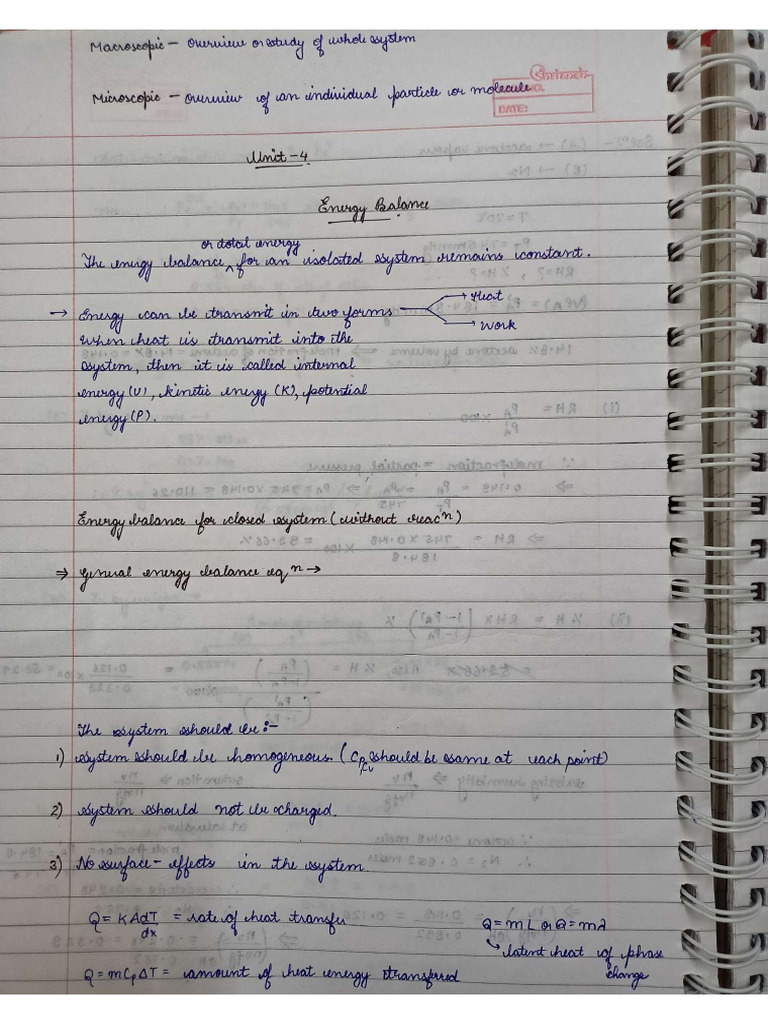 Macroscopic – overview or study of whole system
Shrinash
NO.
Microscopic – overview of an individual particle or molecule
DATE:
Unit-4
Energy Balance
or total energy
The energy balance ^ for an isolated system remains constant.
→ Energy can be transmit in two forms → Heat
→ Work
When heat is transmit into the
system, then it is called internal
energy (U), kinetic energy (K), potential
energy (P).
Energy balance for closed system (without reacⁿ)
⇒ General energy balance eqⁿ →
The system should be:-
1) system should be homogeneous. (Cp,Cv should be same at each point)
2) system should not be charged.
3) No surface-effects in the system.
Q = kA dT/dx = rate of heat transfer Q = mL or Q = mλ
↳ latent heat of phase change
Q = mCpΔT = amount of heat energy transferred